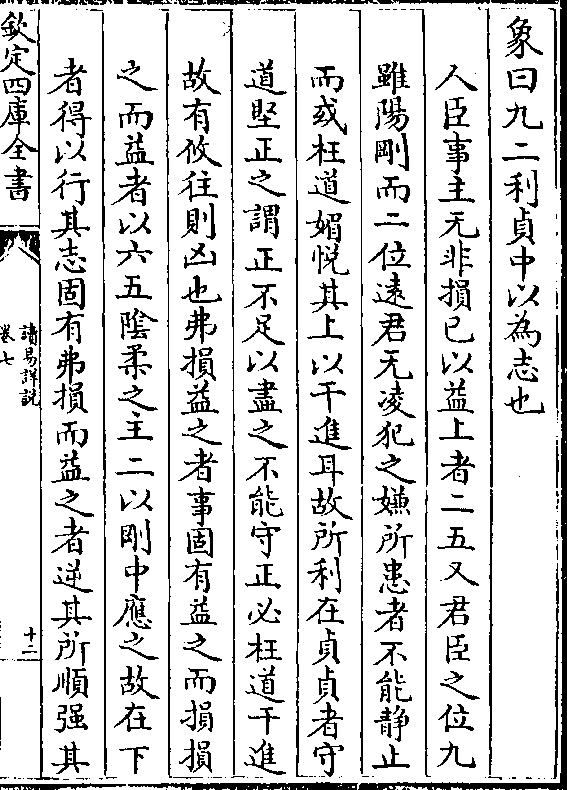 象曰九二利貞中以為志也
人臣事主无非損已以益上者二五又君臣之位九
雖陽剛而二位遠君无凌犯之嫌所患者不能静止
而或枉道媚悅其上以干進耳故所利在貞貞者守
道堅正之謂正不足以盡之不能守正必枉道干進
故有攸往則凶也弗損益之者事固有益之而損損
之而益者以六五陰柔之主二以剛中應之故在下
者得以行其志固有弗損而益之者逆其所順强其
欽定四庫全書
讀易詳說
卷七
十二